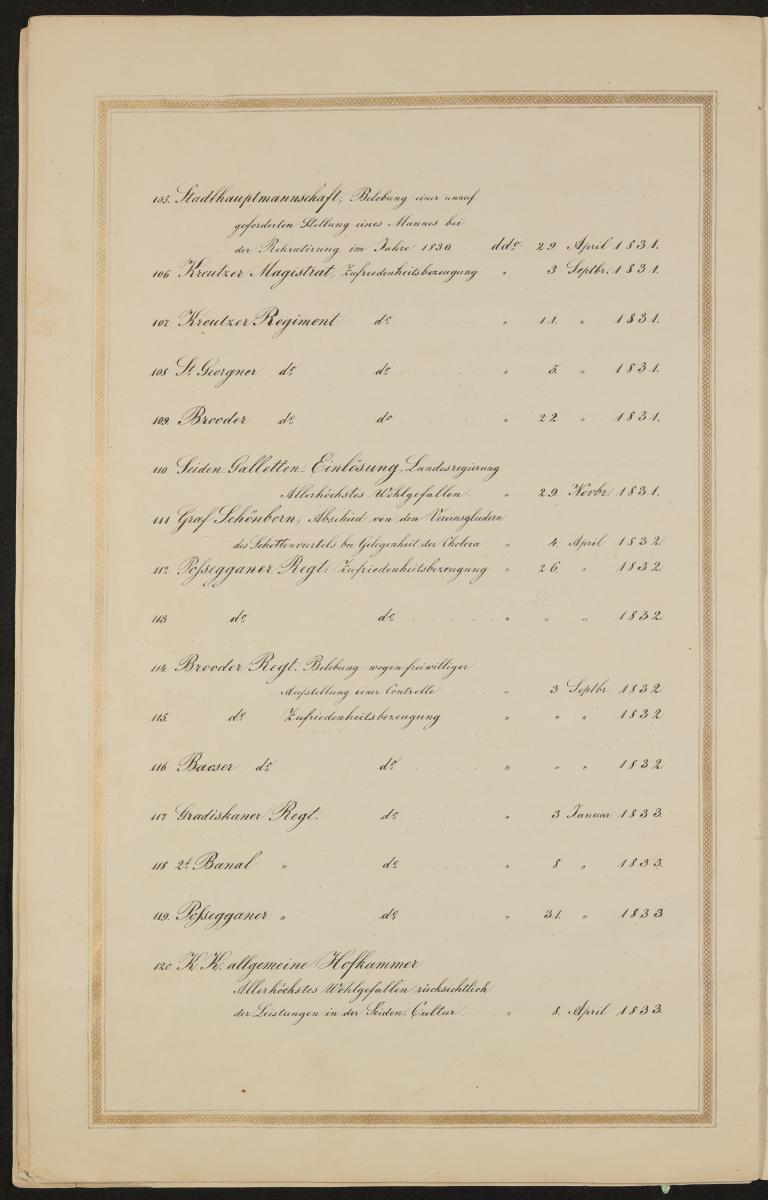 105. Stadthauptmannschaft, Belobung einer unauf
geforderten Stellung eines Mannes bei
der Rekrutirung im Jahre 1830 ddo 29 April 1831.
106 Kreutzer Magistrat. Zufriedenheitsbezeugung " 3 Septbr. 1831.
107. Kreutzer Regiment do " 11. " 1831.
108 St. Georgner do do " 5. " 1831.
109. Brooder do do " 22 " 1831.
110 Seiden-Galletten-Einlösung, Landesregierung
Allerhöchstes Wohlgefallen " 29 Novbr. 1831.
111 Graf Schönborn, Abschied von den Vereinsgliedern
des Schottenviertels bei Gelegenheit der Cholera " 4. April 1832
112 Possegganer Regt: Zufriedenheitsbezeugung " 26. " 1832
113 do do " " " 1832
114. Brooder Regt. Belobung wegen freiwilliger
Aufstellung einer Controlle " 3 Septbr 1832
115. do Zufriedenheitsbezeugung " " " 1832
116 Bacser do do " " " 1832
117. Gradiskaner Regt. do " 3 Januar 1833.
118 2t. Banal " do " 8 " 1833.
119. Possegganer " do " 31. " 1833
120. K. K. allgemeine Hofkammer
Allerhöchstes Wohlgefallen rücksichtlich
der Leistungen in der Seiden-Cultur " 8. April 1833.